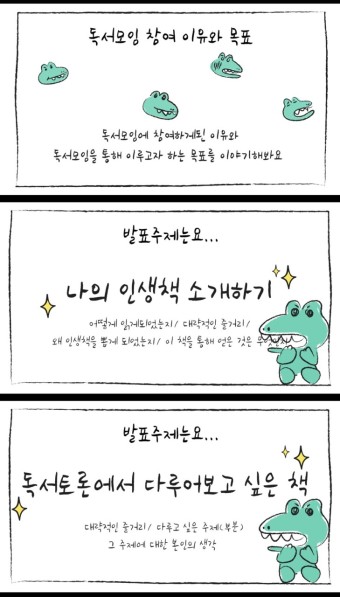 독서모임 참여 이유와 목표
독서모임에 참여하게된 이유와
독서모임을 통해 이루고자 하는 목표를 이야기해봐요
발표주제는요...
나의 인생책 소개하기
어떻게 읽게되었는지/ 대략적인 줄거리/
왜 인생책을 뽑게 되었는지/ 이 책을 통해 얻은 것은 무엇인지
발표주제는요...
독서토론에서 다루어보고 싶은 책
대략적인 줄거리/ 다루고 싶은 주제(부분)
그 주제에 대한 본인의 생각